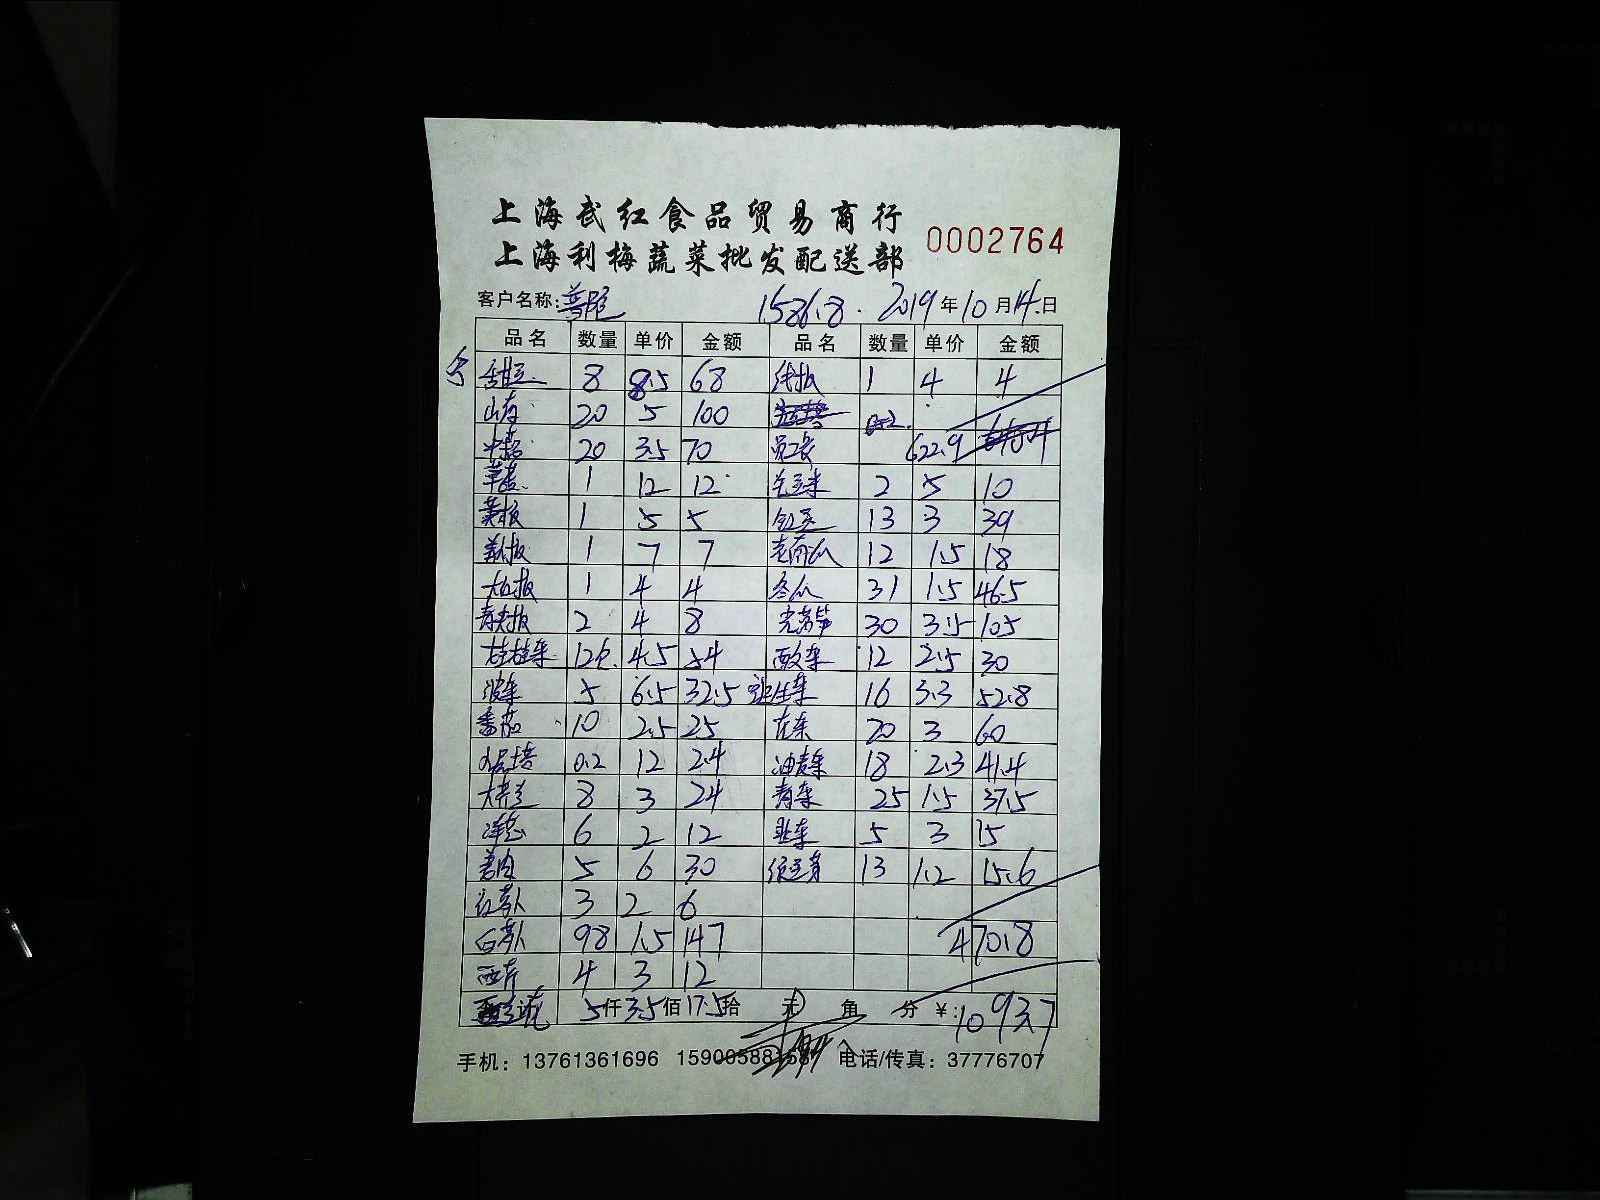 上海武红食品贸易商行
上海利梅蔬菜批发配送部 0002764
客户名称: 1586.8. 2019年10月14日
品名 数量 单价 金额 品名 数量 单价 金额
8 8.5 68 线椒 1 4 4
山药 20 5 100
中菇 20 3.5 70 员工餐 622.9
草菇 1 12 12 毛豆米 2 5 10
黄椒 1 5 5 豇豆 13 3 39
美椒 1 7 7 老南瓜 12 1.5 18
大红椒 1 4 4 冬瓜 31 1.5 46.5
青尖椒 2 4 8 光莴笋 30 3.5 105
娃娃菜 12包 4.5 54 西生菜 12 2.5 30
菠菜 5 6.5 32.5 生菜 16 3.3 52.8
番茄 10 2.5 25 花菜 20 3 60
0.2 12 2.4 油麦菜 18 2.3 41.4
8 3 24 青菜 25 1.5 37.5
洋葱 6 2 12 韭菜 5 3 15
姜肉 5 6 30 绿豆芽 13 1.2 15.6
红萝卜 3 2 6
白萝卜 98 1.5 147 470.8
西芹 4 3 12
5仟3.5佰17.5拾 元 角 分 ¥:1093.7
手机：13761361696 电话/传真：37776707